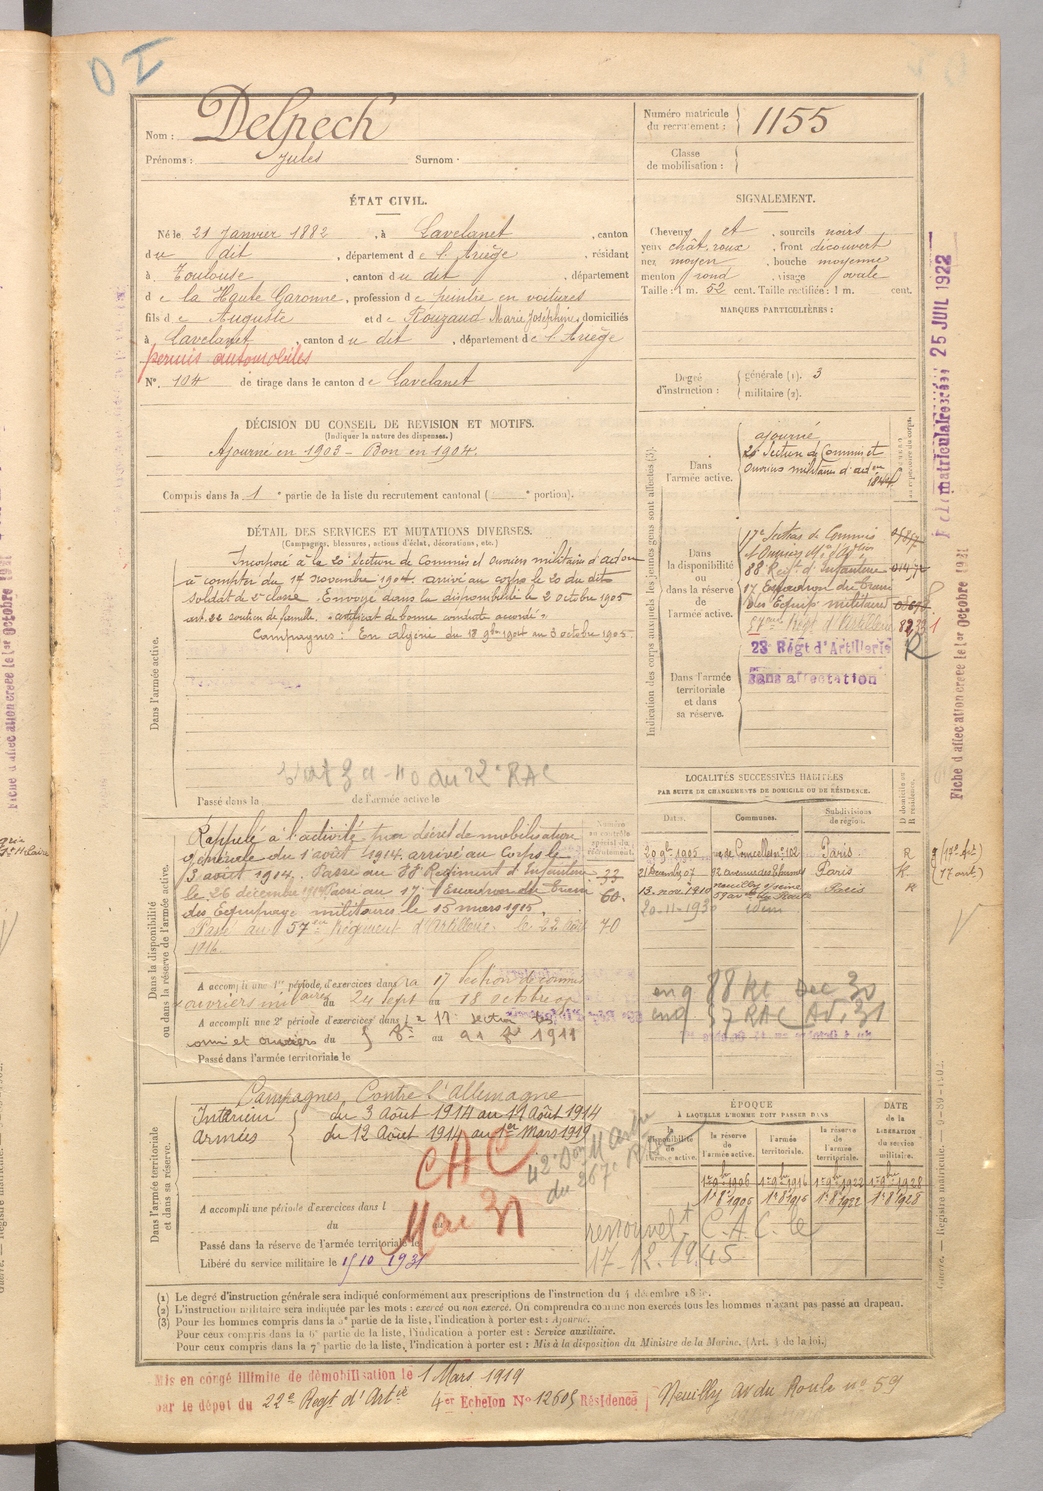 DI
Nom : Delpech
Prénoms : Jules Surnom :
Numéro matricule
du recrutement : 1155
Classe
de mobilisation :
ÉTAT CIVIL.
Né le 21 Janvier 1882, à Lavelanet, canton
du dit, département de l'Ariège, résidant
à Toulouse, canton du dit, département
de la Haute Garonne, profession de peintre en voitures
fils de Auguste et de Rouzaud Marie Joséphine, domiciliés
à Lavelanet, canton du dit, département de l'Ariège
permis automobiles
N° 104 de tirage dans le canton de Lavelanet
SIGNALEMENT.
Cheveux et, sourcils noirs
yeux chât. roux, front découvert
nez moyen, bouche moyenne
menton rond, visage ovale
Taille : 1 m. 52 cent. Taille rectifiée : 1 m. cent.
MARQUES PARTICULIÈRES :
Degré
d'instruction :
générale (1). 3
militaire (2).
DÉCISION DU CONSEIL DE REVISION ET MOTIFS.
(Indiquer la nature des dispenses.)
Ajourné en 1903 - Bon en 1904.
Compris dans la 1e partie de la liste du recrutement cantonal ( e portion).
DÉTAIL DES SERVICES ET MUTATIONS DIVERSES.
(Campagnes, blessures, actions d'éclat, décorations, etc.)
Dans l'armée active.
Incorporé à la 20e Section de Commis et Ouvriers militaires d'adon
à compter du 14 novembre 1904. arrivé au corps le 20 du dit
soldat de 2e classe. Envoyé dans la disponibilité le 2 octobre 1905
art. 32 soutien de famille. "certificat de bonne conduite accordé"
Campagnes : En algérie du 18 9bre 1904 au 3 octobre 1905.
22e RAC
Passé dans la de l'armée active le
Indication des corps auxquels les jeunes gens sont affectés (3).
Dans
l'armée active.
ajourné
20e Section de Commis et
Ouvriers militaires d'adon
Dans
la disponibilité
ou
dans la réserve
de
l'armée active.
17e Section de Commis
88e Regt d'Infanterie
17 Escadron du train
des Equip. militaires
57eme Régt d'Artillerie
23 Régt d'Artillerie R
Dans l'armée
territoriale
et dans
sa réserve.
Sans affectation
Fiche matriculaire créée 25 JUIL 1922
Fiche d'affectation créée le 1er Octobre 1931
LOCALITÉS SUCCESSIVES HABITÉES
PAR SUITE DE CHANGEMENTS DE DOMICILE OU DE RÉSIDENCE.
Dates. Communes. Subdivisions
de région. D domicile ou
R résidence.
Paris R
Paris R
13 nov. 1910 Neuilly s/seine Paris R
20-11-1930 idem
Dans la disponibilité
ou dans la réserve de l'armée active.
Rappelé à l'activité par décret de mobilisation
générale du 1 août 1914. arrivé au Corps le
3 août 1914. Passé au 88 Régiment d'Infanterie
le 26 décembre 1914 Passé au 17e Escadron du Train
des Equipages militaires le 15 mars 1915.
Passé au 57eme Régiment d'Artillerie le 22 août
1916.
A accompli une 1re période d'exercices dans la 17 Section de commis
ouvriers militaires du 24 Sept au 18 octobre
A accompli une 2e période d'exercices dans la 17e Section de
comi et ouvriers du 5 au 21 1911
Passé dans l'armée territoriale le
88 RI Dec 30
37 RAC Av. 31
Dans l'armée territoriale
et dans sa réserve.
Campagnes Contre l'Allemagne
Intérieur du 3 Août 1914 au 11 Août 1914
Armées du 12 Août 1914 au 1er Mars 1919
CAC
Mai 31
A accompli une période d'exercices dans l
du
Passé dans la réserve de l'armée territoriale le
Libéré du service militaire le 15/10 1931
ÉPOQUE
À LAQUELLE L'HOMME DOIT PASSER DANS
la disponibilité
de l'armée active. la réserve
de
l'armée active. l'armée
territoriale. la réserve
de
l'armée
territoriale.
DATE
de la
LIBÉRATION
du service
militaire.
renouvelt C.A.C. le
17-12-1945
(1) Le degré d'instruction générale sera indiqué conformément aux prescriptions de l'instruction du 4 décembre
(2) L'instruction militaire sera indiquée par les mots : exercé ou non exercé. On comprendra comme non exercés tous les hommes n'ayant pas passé au drapeau.
(3) Pour les hommes compris dans la 5e partie de la liste, l'indication à porter est : Ajourné.
Pour ceux compris dans la 6e partie de la liste, l'indication à porter est : Service auxiliaire.
Pour ceux compris dans la 7e partie de la liste, l'indication à porter est : Mis à la disposition du Ministre de la Marine. (Art. 4 de la loi.)
Mis en congé illimité de démobilisation le 1 Mars 1919
par le dépôt du 22e Regt d'Artie 4er Echelon N° 12605 Résidence Neuilly av du Roule n° 59